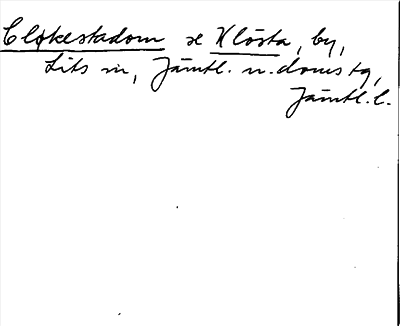 Cløkestadom se Klösta, by,
Lits sn, Jämtl. n. doms tg,
Jämtl. l.